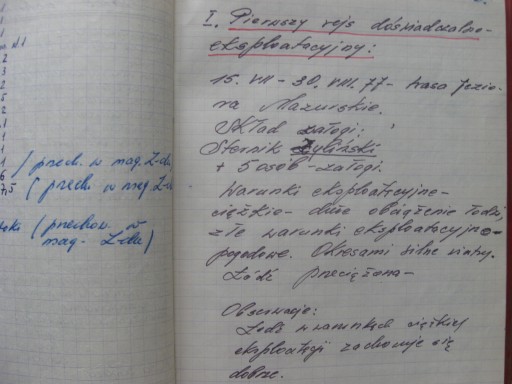 1
2
3
2
5
2
1
1
1
1
6 / przech. w mag. Z-du
7,5 ( przech. w mag. Z-du
( przechow. w
mag. Z-du )
I. Pierwszy rejs doświadczalno-
eksploatacyjny:
15. VII - 30. VIII. 77 - trasa Jezio-
ra Mazurskie.
Skład załogi:
Sternik Żyliński
+ 5 osób - załogi.
Warunki eksploatacyjne -
ciężkie - duże obciążenie łodzi,
złe warunki eksploatacyjno-
pogodowe. Okresami silne wiatry.
Łódź przeciążona -
Obserwacje:
Łódź w warunkach ciężkiej
eksploatacji zachowuje się
dobrze.